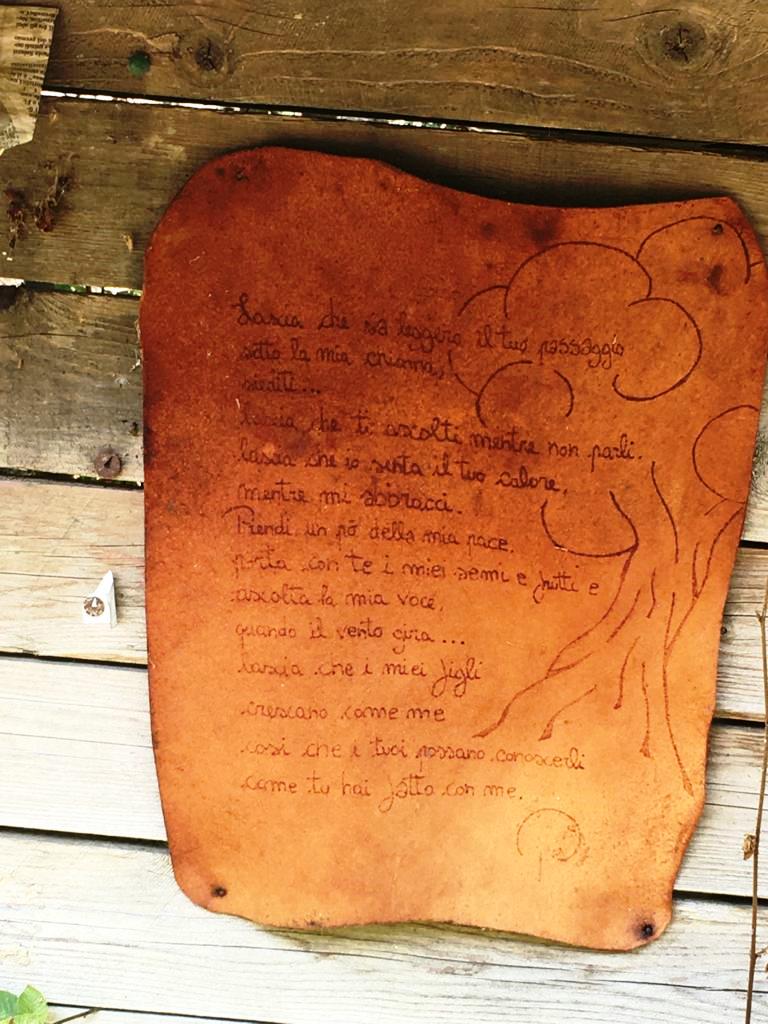 Lascia che sia leggero il tuo passaggio
sotto la mia chioma,
siediti...
lascia che ti ascolti mentre non parli.
lascia che io senta il tuo calore,
mentre mi abbracci.
Prendi un pò della mia pace,
porta con te i miei semi e frutti e
ascolta la mia voce,
quando il vento gira...
lascia che i miei figli
crescano come me
così che i tuoi possano conoscerli
come tu hai fatto con me.